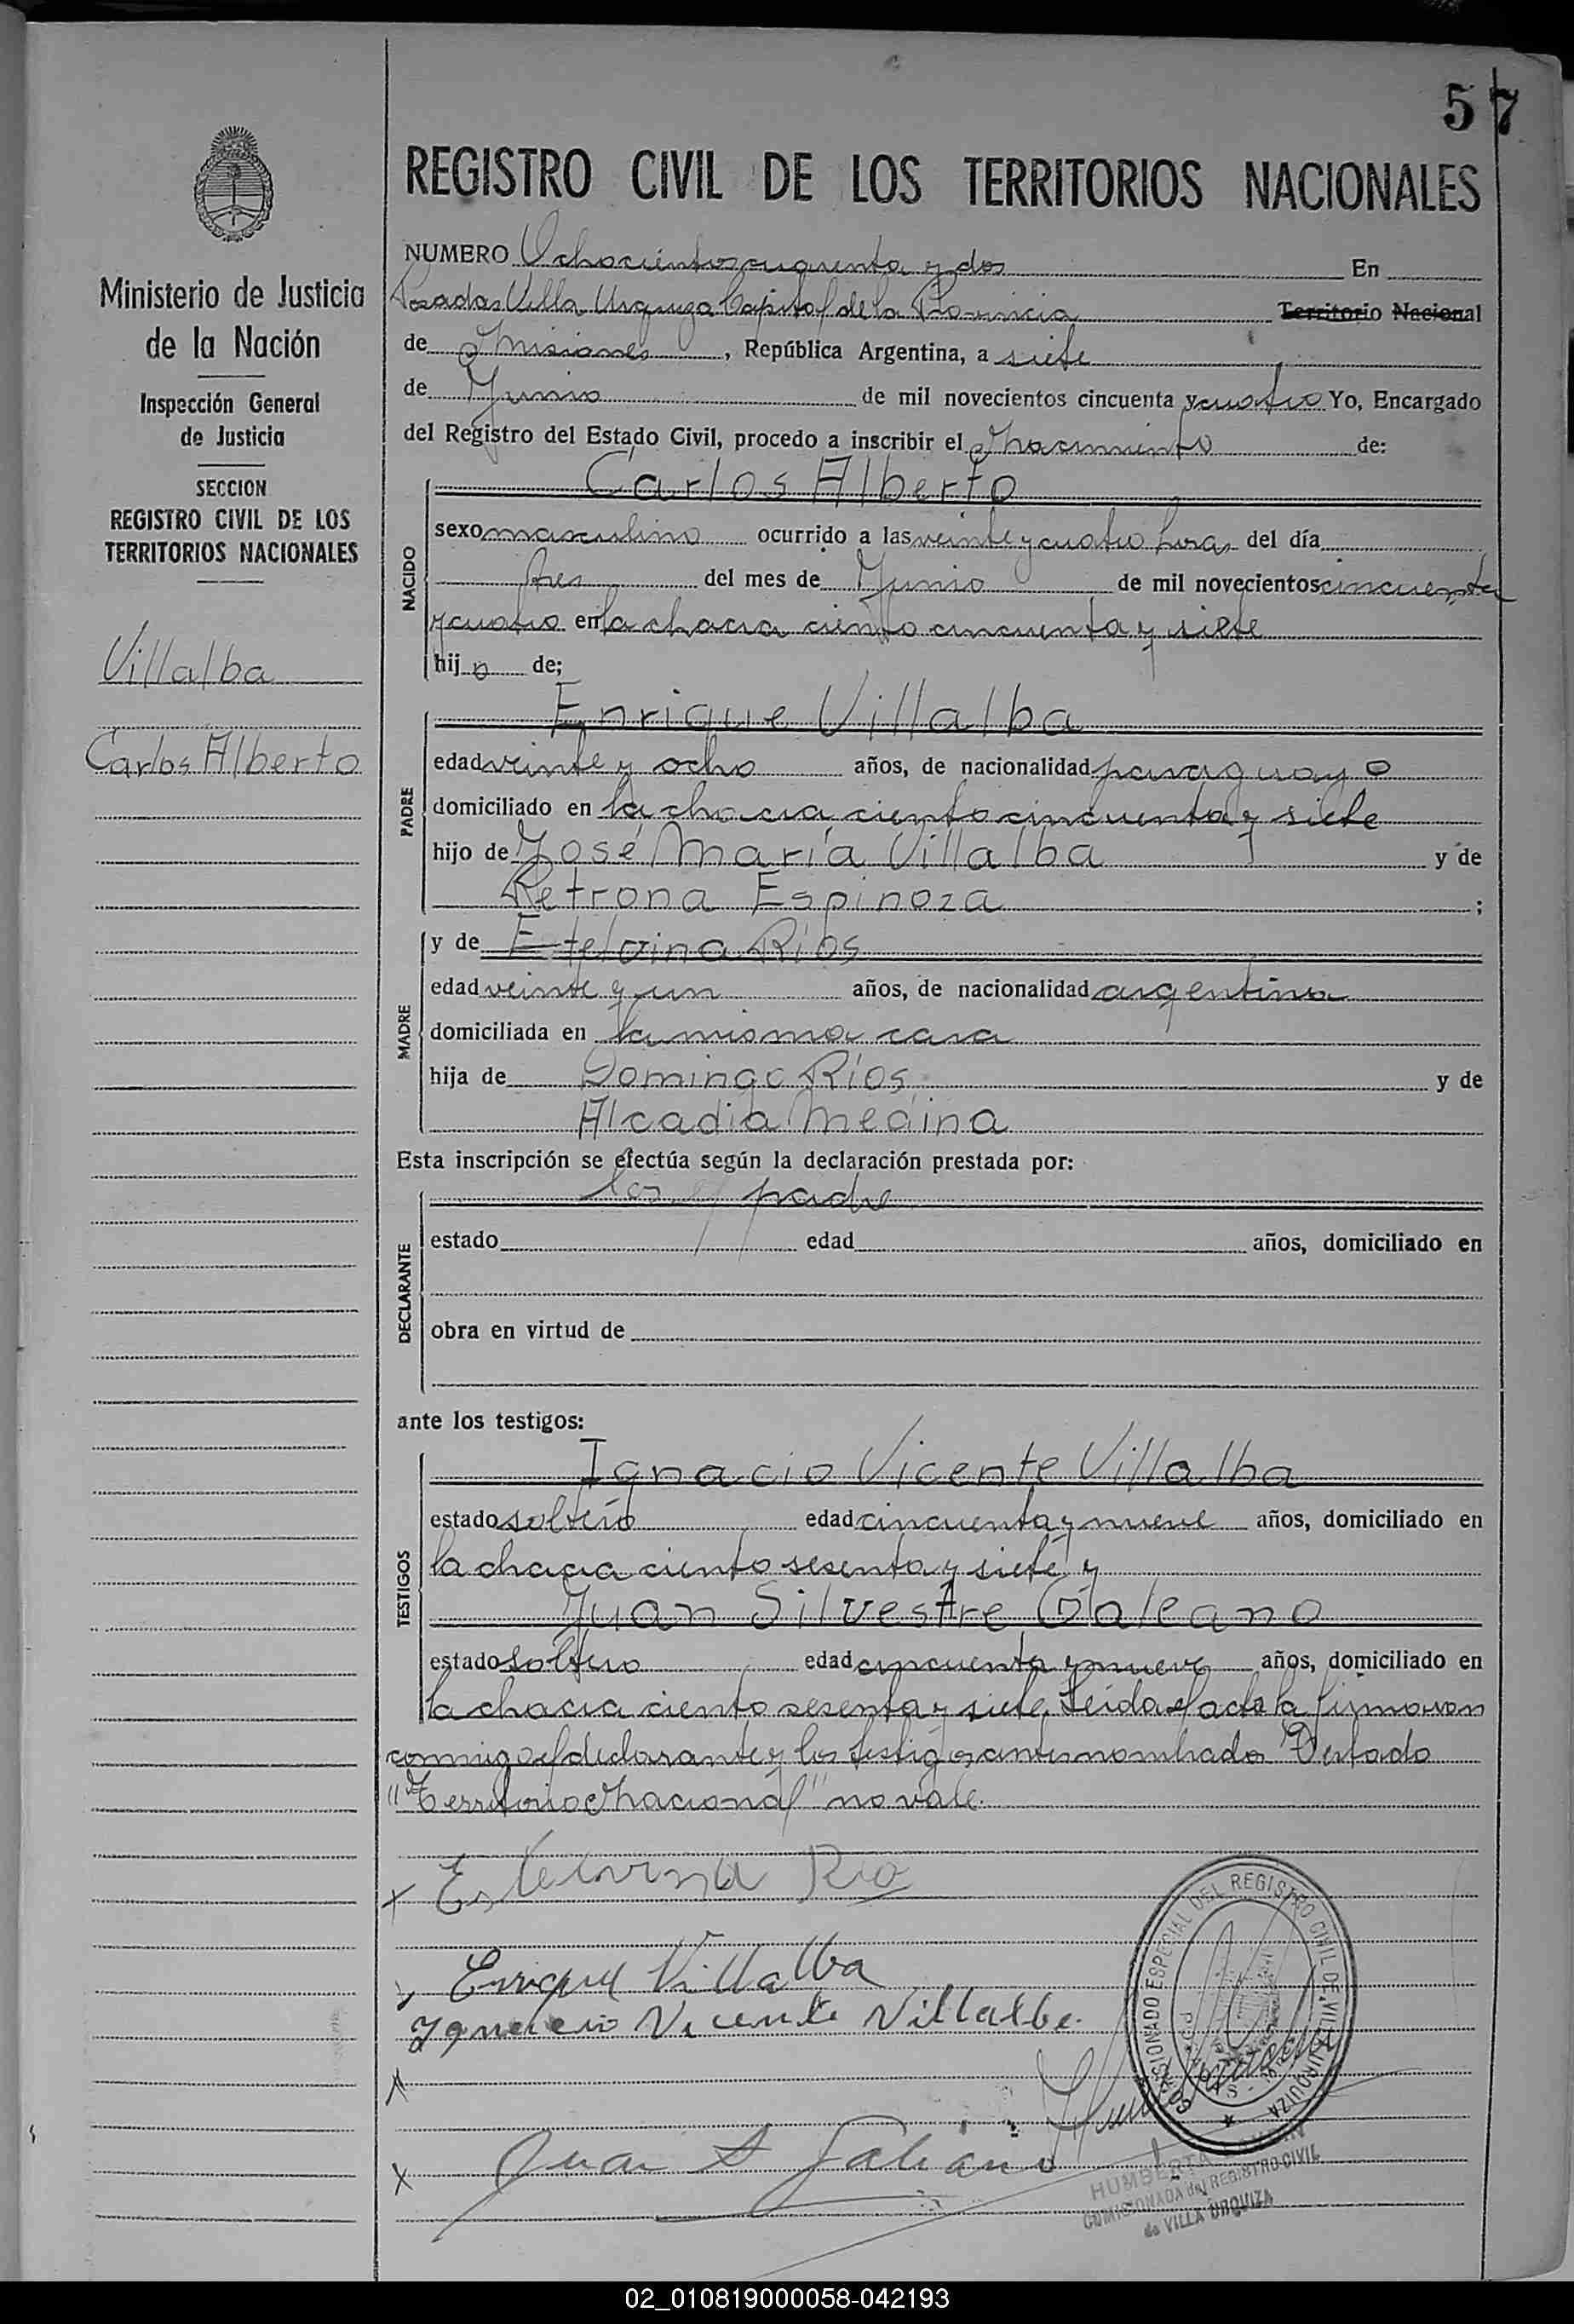 57
REGISTRO CIVIL DE LOS TERRITORIOS NACIONALES
Ministerio de Justicia
de la Nación
Inspección General
de Justicia
SECCION
REGISTRO CIVIL DE LOS
TERRITORIOS NACIONALES
Villalba
Carlos Alberto
NUMERO Ochocientos cincuenta y dos En
Posadas Villa Urquiza Capital de la Provincia Territorio Nacional
de Misiones, República Argentina, a siete
de Junio de mil novecientos cincuenta y cuatro Yo, Encargado
del Registro del Estado Civil, procedo a inscribir el Nacimiento de:
NACIDO
Carlos Alberto
sexo masculino ocurrido a las veinte y cuatro horas del día
tres del mes de Junio de mil novecientos cincuenta
y cuatro en la chacra ciento cincuenta y siete
hijo de;
PADRE
Enrique Villalba
edad veinte y ocho años, de nacionalidad paraguayo
domiciliado en la chacra ciento cincuenta y siete
hijo de José María Villalba y de
Petrona Espinoza ;
MADRE
y de Etelvina Ríos
edad veinte y un años, de nacionalidad argentina
domiciliada en la misma casa
hija de Domingo Ríos y de
Alcadia Medina
Esta inscripción se efectúa según la declaración prestada por:
DECLARANTE
el padre
estado edad años, domiciliado en
obra en virtud de
ante los testigos:
TESTIGOS
Ignacio Vicente Villalba
estado soltero edad cincuenta y nueve años, domiciliado en
la chacra ciento sesenta y siete y
Juan Silvestre Galeano
estado soltero edad cincuenta y nueve años, domiciliado en
la chacra ciento sesenta y siete. Leída el acta la firmaron
conmigo el declarante y los testigos antes nombrados Testado
"Territorio Nacional" no vale.
x Estelvina Rio
Enrique Villalba
Ygnacio Vicente Villalba.
x
x Juan S Galiano
COMISIONADO ESPECIAL DEL REGISTRO CIVIL DE VILLA URQUIZA
HUMBERTA
COMISIONADA del REGISTRO CIVIL
de VILLA URQUIZA
02_010819000058-042193